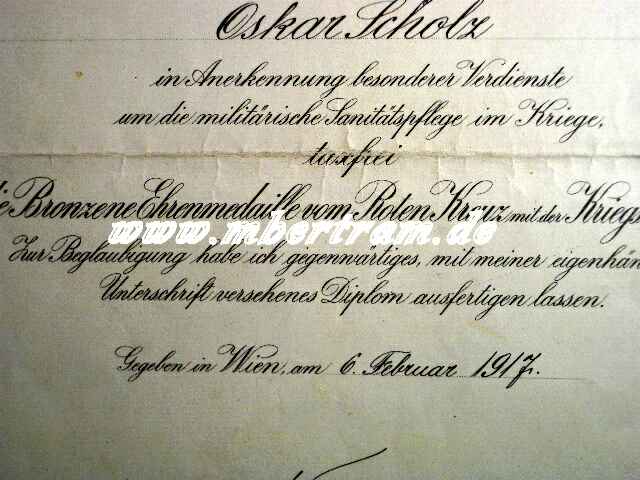 Oskar Scholz
in Anerkennung besonderer Verdienste
um die militärische Sanitätspflege im Kriege,
taxfrei
ie Bronzene Ehrenmedaille vom Roten Kreuz mit der Kriegs
www.mbertram.de
Zur Beglaubigung habe ich gegenwärtiges, mit meiner eigenhän
Unterschrift versehenes Diplom ausfertigen lassen.
Gegeben in Wien, am 6. Februar 1917.